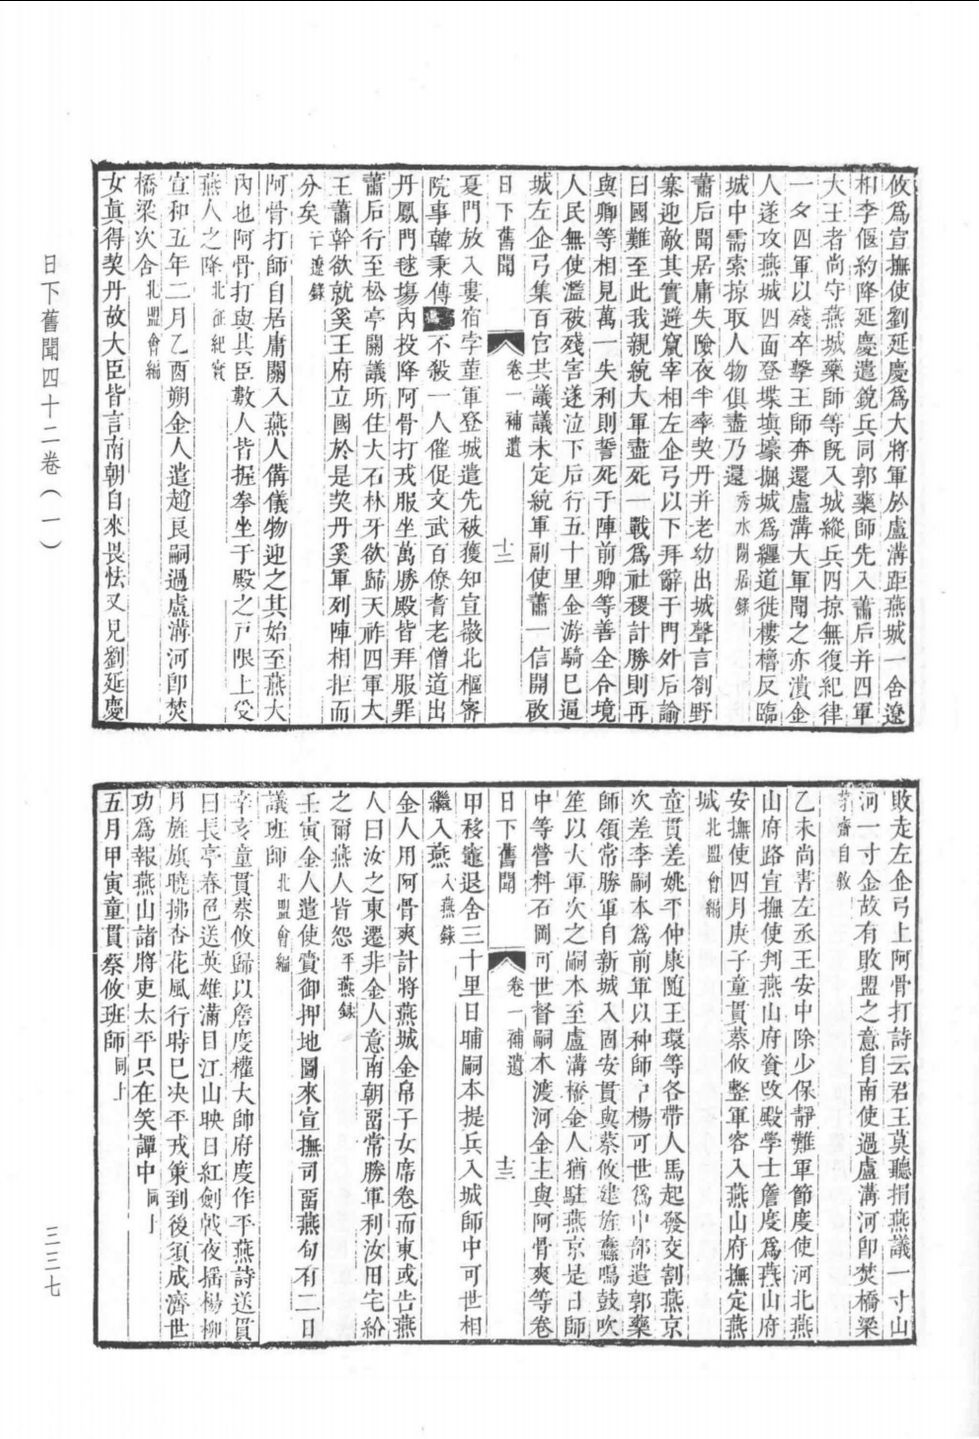 攸爲宣撫使劉延慶爲大將軍於盧溝距燕城一舍遼
相李偃約降延慶遣銳兵同郭藥師先入蕭后并四軍
大王者尚守燕城藥師等旣入城縱兵四掠無復紀律
一夕四軍以殘卒擊王師奔還盧溝大軍聞之亦潰金
人遂攻燕城四面登堞塡壕掘城爲纒道徙樓櫓反臨
城中需索掠取人物俱盡乃還秀水閒居錄
蕭后聞居庸失險夜半率契丹并老幼出城聲言劄野
寨迎敵其實避竄宰相左企弓以下拜辭于門外后諭
曰國難至此我親統大軍盡死一戰爲社稷計勝則再
與卿等相見萬一失利則誓死于陣前卿等善全合境
人民無使濫被殘害遂泣下后行五十里金游騎已逼
城左企弓集百官共議議未定統軍副使蕭一信開啟
日下舊聞 卷一補遺 十二
夏門放入婁宿孛菫軍登城遣先被獲知宣徽北樞審
院事韓秉傳不殺一人催促文武百僚耆老僧道出
丹鳳門毬塲內投降阿骨打戎服坐萬勝殿皆拜服罪
蕭后行至松亭關議所住大石林牙欲歸天祚四軍大
王蕭幹欲就奚王府立國於是契丹奚軍列陣相拒而
分矣亡遼錄
阿骨打師自居庸關入燕人備儀物迎之其始至燕大
內也阿骨打與其臣數人皆握拳坐于殿之戸限上受
燕人之降北征紀實
宣和五年二月乙酉朔金人遣趙良嗣過盧溝河卽焚
橋梁次舍北盟會編
女眞得契丹故大臣皆言南朝自來畏怯又見劉延慶
敗走左企弓上阿骨打詩云君王莫聽捐燕議一寸山
河一寸金故有敗盟之意自南使過盧溝河卽焚橋梁
茅齋自敘
乙未尚書左丞王安中除少保靜難軍節度使河北燕
山府路宣撫使判燕山府資政殿學士詹度爲燕山府
安撫使四月庚子童貫蔡攸整軍容入燕山府撫定燕
城北盟會編
童貫差姚平仲康隨王環等各帶人馬起發交割燕京
次差李嗣本爲前軍以种師中楊可世爲中部遣郭藥
師領常勝軍自新城入固安貫與蔡攸建旂纛鳴鼓吹
笙以大軍次之嗣本至盧溝橋金人猶駐燕京是日師
中等營料石岡可世督嗣本渡河金主與阿骨爽等卷
日下舊聞 卷一補遺 十三
甲移竈退舍三十里日晡嗣本提兵入城師中可世相
繼入燕入燕錄
金人用阿骨爽計將燕城金帛子女席卷而東或告燕
人曰汝之東遷非金人意南朝畱常勝軍利汝田宅給
之爾燕人皆怨平燕錄
壬寅金人遣使賫御押地圖來宣撫司畱燕旬有二日
議班師北盟會編
辛亥童貫蔡攸歸以詹度權大帥府度作平燕詩送貫
曰長亭春色送英雄滿目江山映日紅劍戟夜搖楊柳
月旌旗曉拂杏花風行時已決平戎策到後須成濟世
功爲報燕山諸將吏太平只在笑譚中同上
五月甲寅童貫蔡攸班師同上
日下舊聞四十二卷(一)
三三七